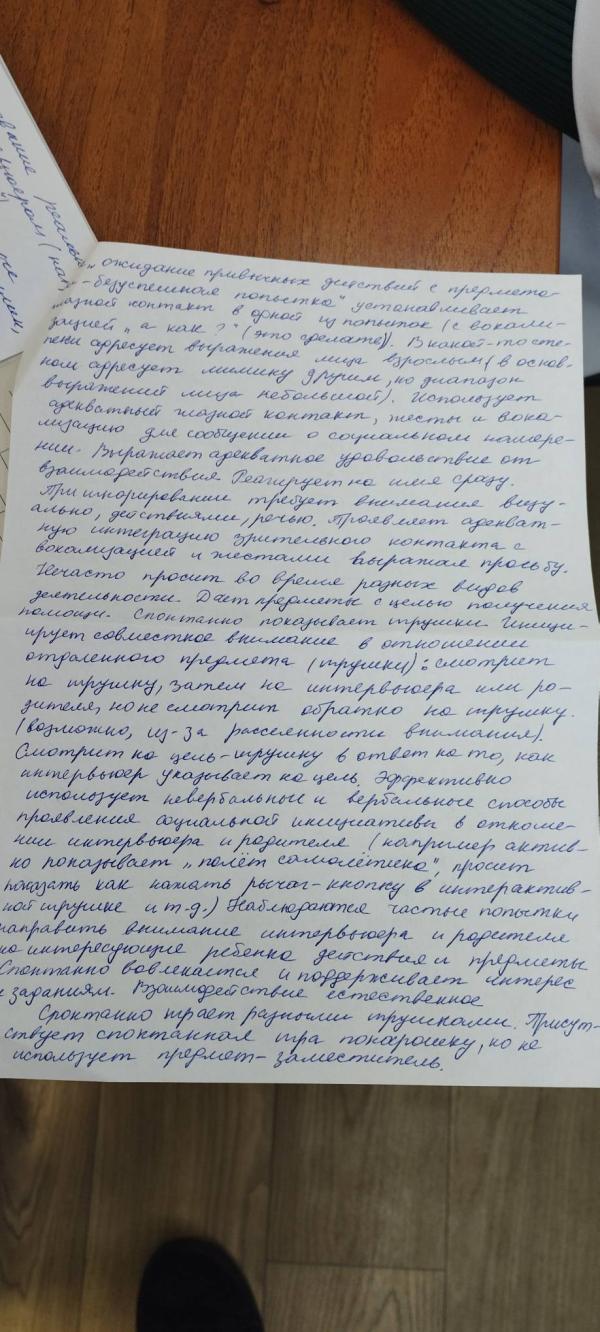 „ожидание привычных действий с предмето-
- безуспешная попытка" устанавливает
глазной контакт в одной из попыток (с вокали-
зацией „а как?" (это сделать)). В какой-то сте-
пени адресует выражения лица взрослым (в основ-
ном адресует мимику другим, но диапазон
выражений лица небольшой). Использует
адекватный глазной контакт, жесты и вока-
лизацию для сообщении о социальном намере-
нии. Выражает адекватное удовольствие от
взаимодействия. Реагирует на имя сразу.
При игнорировании требует внимания визу-
ально, действиями, речью. Проявляет адекват-
ную интеграцию зрительного контакта с
вокализацией и жестами выражая просьбу.
Нечасто просит во время разных видов
деятельности. Дает предметы с целью получения
помощи. Спонтанно показывает игрушки. Иници-
ирует совместное внимание в отношении
отдаленного предмета (игрушки): смотрит
на игрушку, затем на интервьюера или ро-
дителя, но не смотрит обратно на игрушку.
(возможно, из-за рассеянности внимания).
Смотрит на цель-игрушку в ответ на то, как
интервьюер указывает на цель. Эффективно
использует невербальные и вербальные способы
проявления социальной инициативы в отноше-
нии интервьюера и родителя (например актив-
но показывает „полёт самолётика", просит
показать как нажать рычаг-кнопку в интерактив-
ной игрушке и т.д.) Наблюдаются частые попытки
направить внимание интервьюера и родителя
на интересующие ребенка действия и предметы
Спонтанно вовлекается и поддерживает интерес
к заданиям. Взаимодействие естественное
Спонтанно играет разными игрушками. Присут-
ствует спонтанная игра понарошку, но не
использует предмет-заместитель.